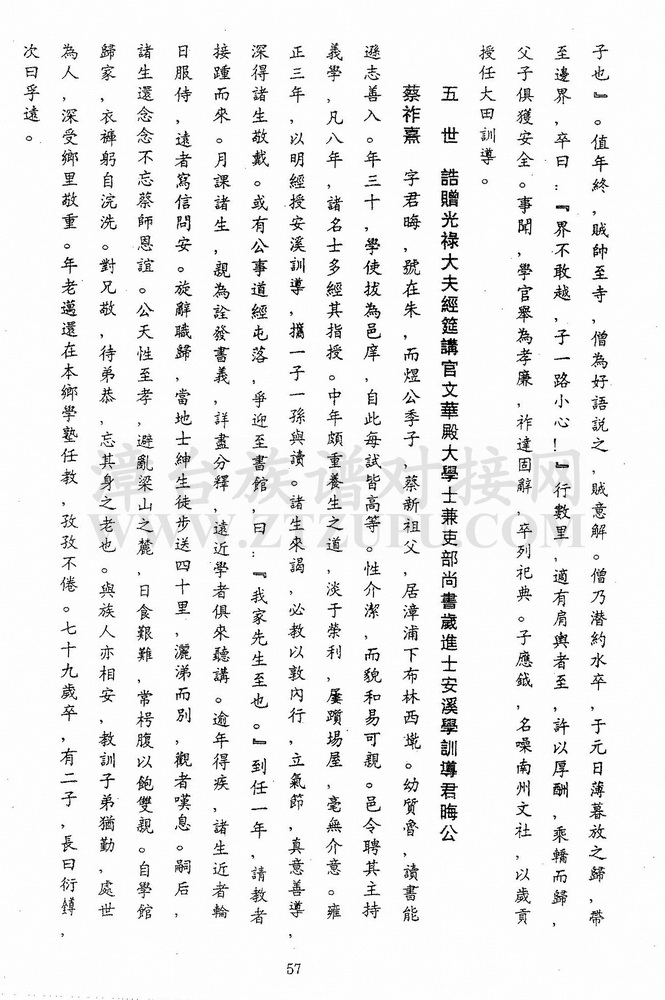 子也』。值年終,賊帥至寺,僧為好語說之,賊意解。僧乃潛約水卒,于元日薄暮放之歸,帶
至邊界,卒曰:『界不敢越,子一路小心!』行數里,適有肩輿者至,許以厚酬,乘轎而歸,
父子俱獲安全。事聞,學官舉為孝廉,祚達固辭,卒列祀典。子應鉞,名噪南州文社,以歲貢
授任大田訓導。
五世 誥贈光祿大夫經筵講官文華殿大學士兼吏部尚書歲進士安溪學訓導君晦公
蔡祚熹 字君晦,號在朱,而煜公季子,蔡新祖父,居漳浦下布林西墘。幼質魯,讀書能
遜志善入。年三十,學使拔為邑庠,自此每試皆高等。性介潔,而貌和易可親。邑令聘其主持
義學,凡八年,諸名士多經其指授。中年頗重養生之道,淡于榮利,屢躓場屋,毫無介意。雍
正三年,以明經授安溪訓導,攜一子一孫與讀。諸生來謁,必教以敦內行,立氣節,真意善導,
深得諸生敬戴。或有公事道經屯落,爭迎至書館,曰:『我家先生至也。』到任一年,請教者
接踵而來。月課諸生,親為詮發書義,詳盡分釋,遠近學者俱來聽講。逾年得疾,諸生近者輪
日服侍,遠者寫信問安。旋辭職歸,當地士紳生徒步送四十里,灑涕而別,觀者嘆息。嗣后,
諸生還念念不忘蔡師恩誼。公天性至孝,避亂梁山之麓,日食艱難,常枵腹以飽雙親。自學館
歸家,衣褲躬自浣洗。對兄敬,待弟恭,忘其身之老也。與族人亦相安,教訓子弟猶勤,處世
為人,深受鄉里敬重。年老邁還在本鄉學塾任教,孜孜不倦。七十九歲卒,有二子,長曰衍鐏,
次曰孚遠。
57
漳台族谱对接网
WWW.ZTZUPU.COM